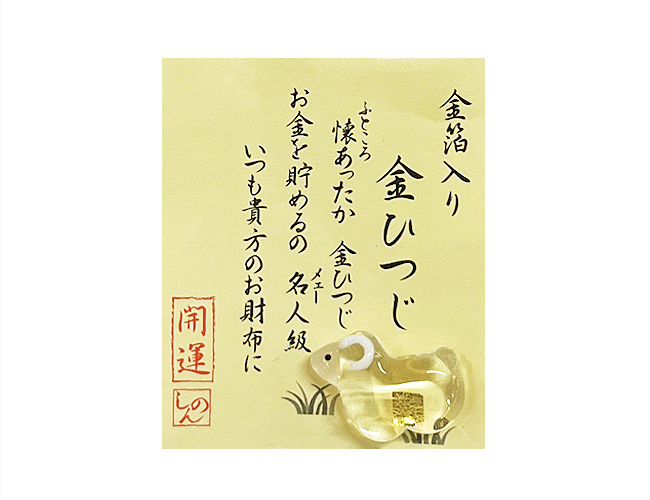 金箔入り
金ひつじ
ふところ
懐あったか 金ひつじ
お金を貯めるの 名人級
メェー
いつも貴方のお財布に
開運
しあん